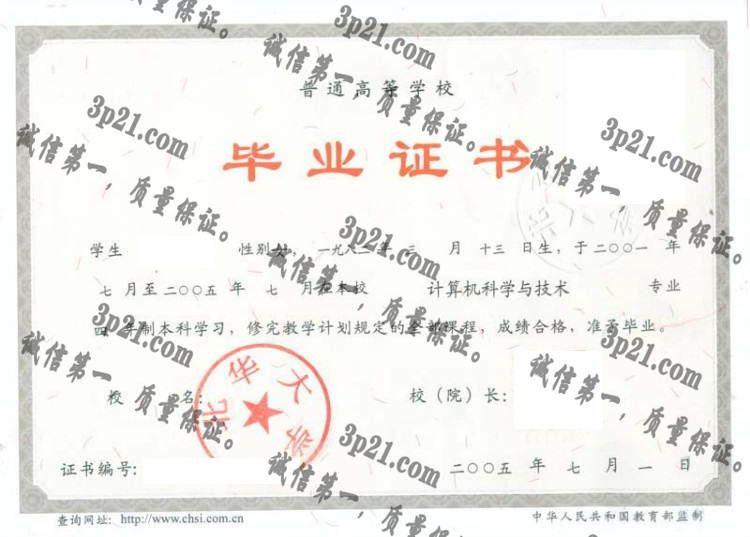 普通高等学校
毕业证书
学生 性别女，一九八二年 三 月 十三 日生，于二〇〇一 年
七 月至二〇〇五 年 七 月在本校 计算机科学与技术 专业
四 年制本科学习，修完教学计划规定的全部课程，成绩合格，准予毕业。
校 名： 校（院）长：
北华大学
证书编号： 二〇〇五 年 七 月 一 日
查询网址：http://www.chsi.com.cn 中华人民共和国教育部监制
3p21.com
诚信第一，质量保证。
3p21.com
诚信第一，质量保证。
3p21.com
诚信第一，质量保证。
3p21.com
诚信第一，质量保证。
3p21.com
诚信第一，质量保证。
3p21.com
诚信第一，质量保证。
3p21.com
诚信第一，质量保证。